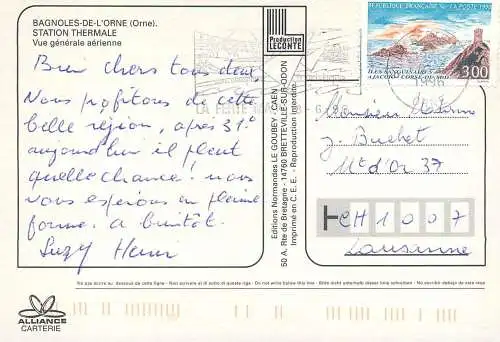 BAGNOLES-DE-L'ORNE (Orne).
STATION THERMALE
Vue générale aérienne
Bien chers tous deux,
Nous profitons de cette
belle région, après 31°
aujourd'hui il pleut
quelle chance! nous
vous espérons en pleine
forme. a bientôt.
Suzy Henri
Production
LECONTE
Editions Normandes LE GOUBEY - CAEN
50 A, Rte de Bretagne - 14760 BRETTEVILLE-SUR-ODON
Imprimé en C.E.E. - Reproduction interdite
REPUBLIQUE FRANÇAISE LA POSTE
ILES SANGUINAIRES
AJACCIO-CORSE-DU-SUD
3,00
LA FERTE
Monsieur Madame
J. Buchet
Mt d'Or 37
CH 1007
Lausanne
Ne pas écrire au dessous de cette ligne - Non scrivere al di sotto di questa riga - Do not write below this line - Bitte nicht unterhalb dieser Linie schreiben - No escribir debajo de esta raya
ALLIANCE
CARTERIE